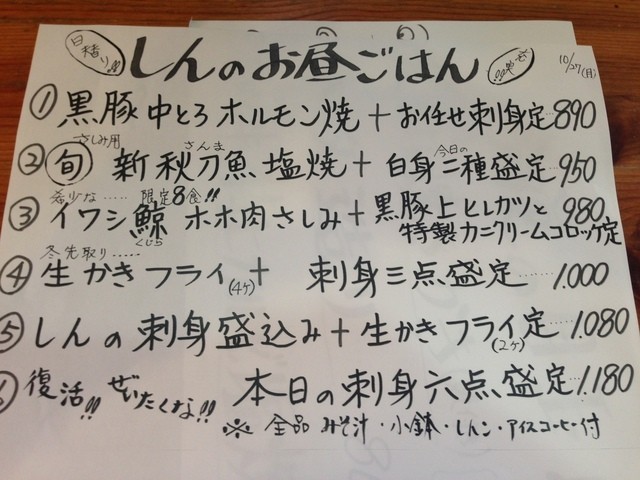 日替り!! しんのお昼ごはん 10/27(月)
① 黒豚中とろホルモン焼+お任せ刺身定 890
さしみ用 さんま 今日の
② 旬 新秋刀魚塩焼+白身二種盛定 950
希少な…… 限定8食!!
③ イワシ鯨ホホ肉さしみ+黒豚上ヒレカツと 980
くじら 特製カニクリームコロッケ定
冬先取り……
④ 生かきフライ(4ケ)+ 刺身三点盛定……1.000
⑤ しんの刺身盛込み+生かきフライ(2ケ)定……1.080
復活!! ぜいたくな!! 本日の刺身六点盛定…1.180
※ 全品 みそ汁・小鉢・しんこ・アイスコーヒー付